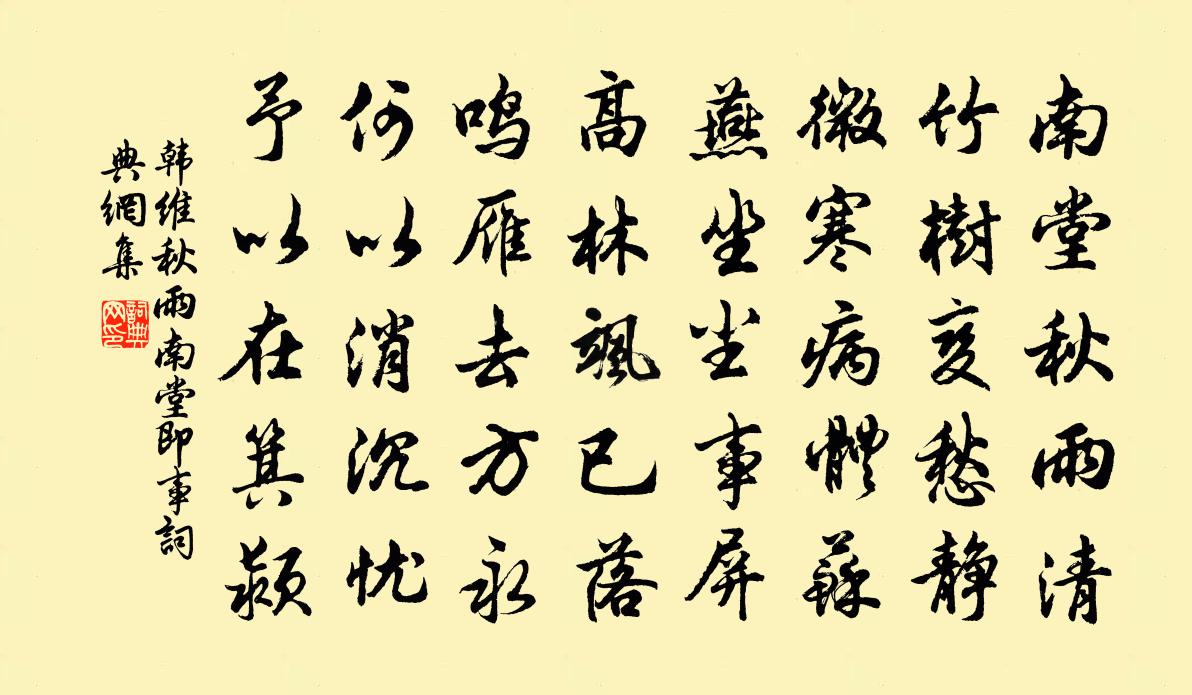 南堂秋雨清
竹樹变愁静
微寒病體蘇
燕坐尘事屏
高林颯已落
鸣雁去方永
何以消沉忧
予以在箕颍
韩维秋雨南堂即事詞
典網集
詞典网印